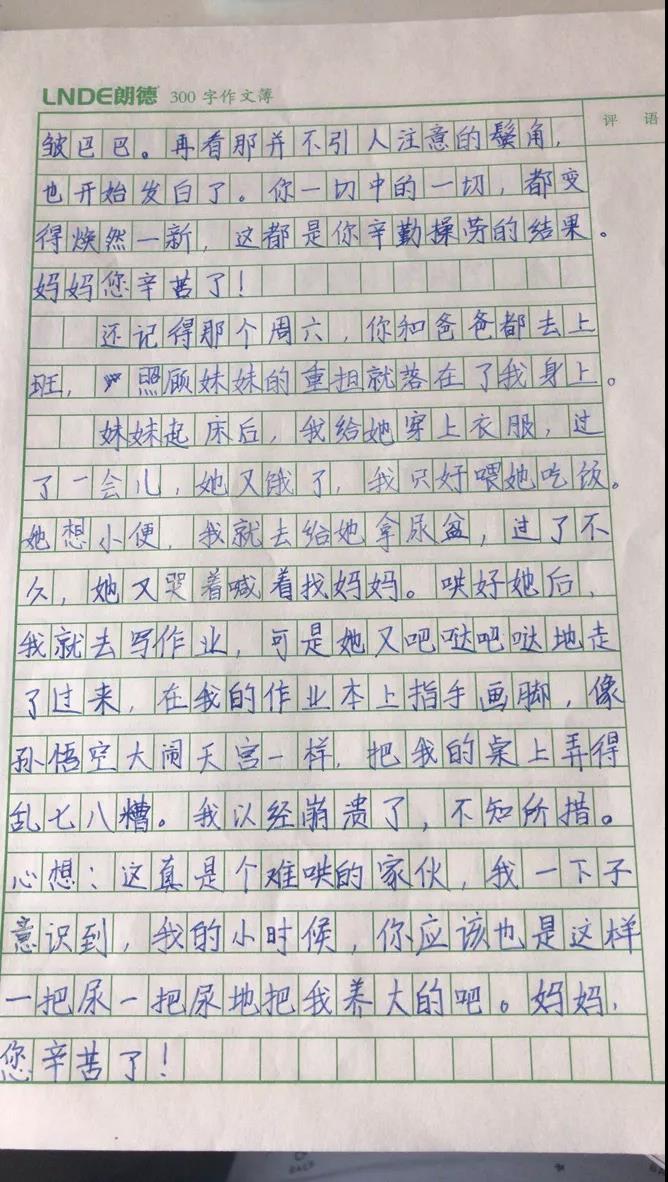 LNDE朗德 300字作文簿
评 语
皱巴巴。再看那并不引人注意的鬓角，
也开始发白了。你一切中的一切，都变
得焕然一新，这都是你辛勤操劳的结果。
妈妈您辛苦了！
还记得那个周六，你和爸爸都去上
班，照顾妹妹的重担就落在了我身上。
妹妹起床后，我给她穿上衣服，过
了一会儿，她又饿了，我只好喂她吃饭。
她想小便，我就去给她拿尿盆，过了不
久，她又哭着喊着找妈妈。哄好她后，
我就去写作业，可是她又吧哒吧哒地走
了过来，在我的作业本上指手画脚，像
孙悟空大闹天宫一样，把我的桌上弄得
乱七八糟。我以经崩溃了，不知所措。
心想：这真是个难哄的家伙，我一下子
意识到，我的小时候，你应该也是这样
一把尿一把尿地把我养大的吧。妈妈，
您辛苦了！